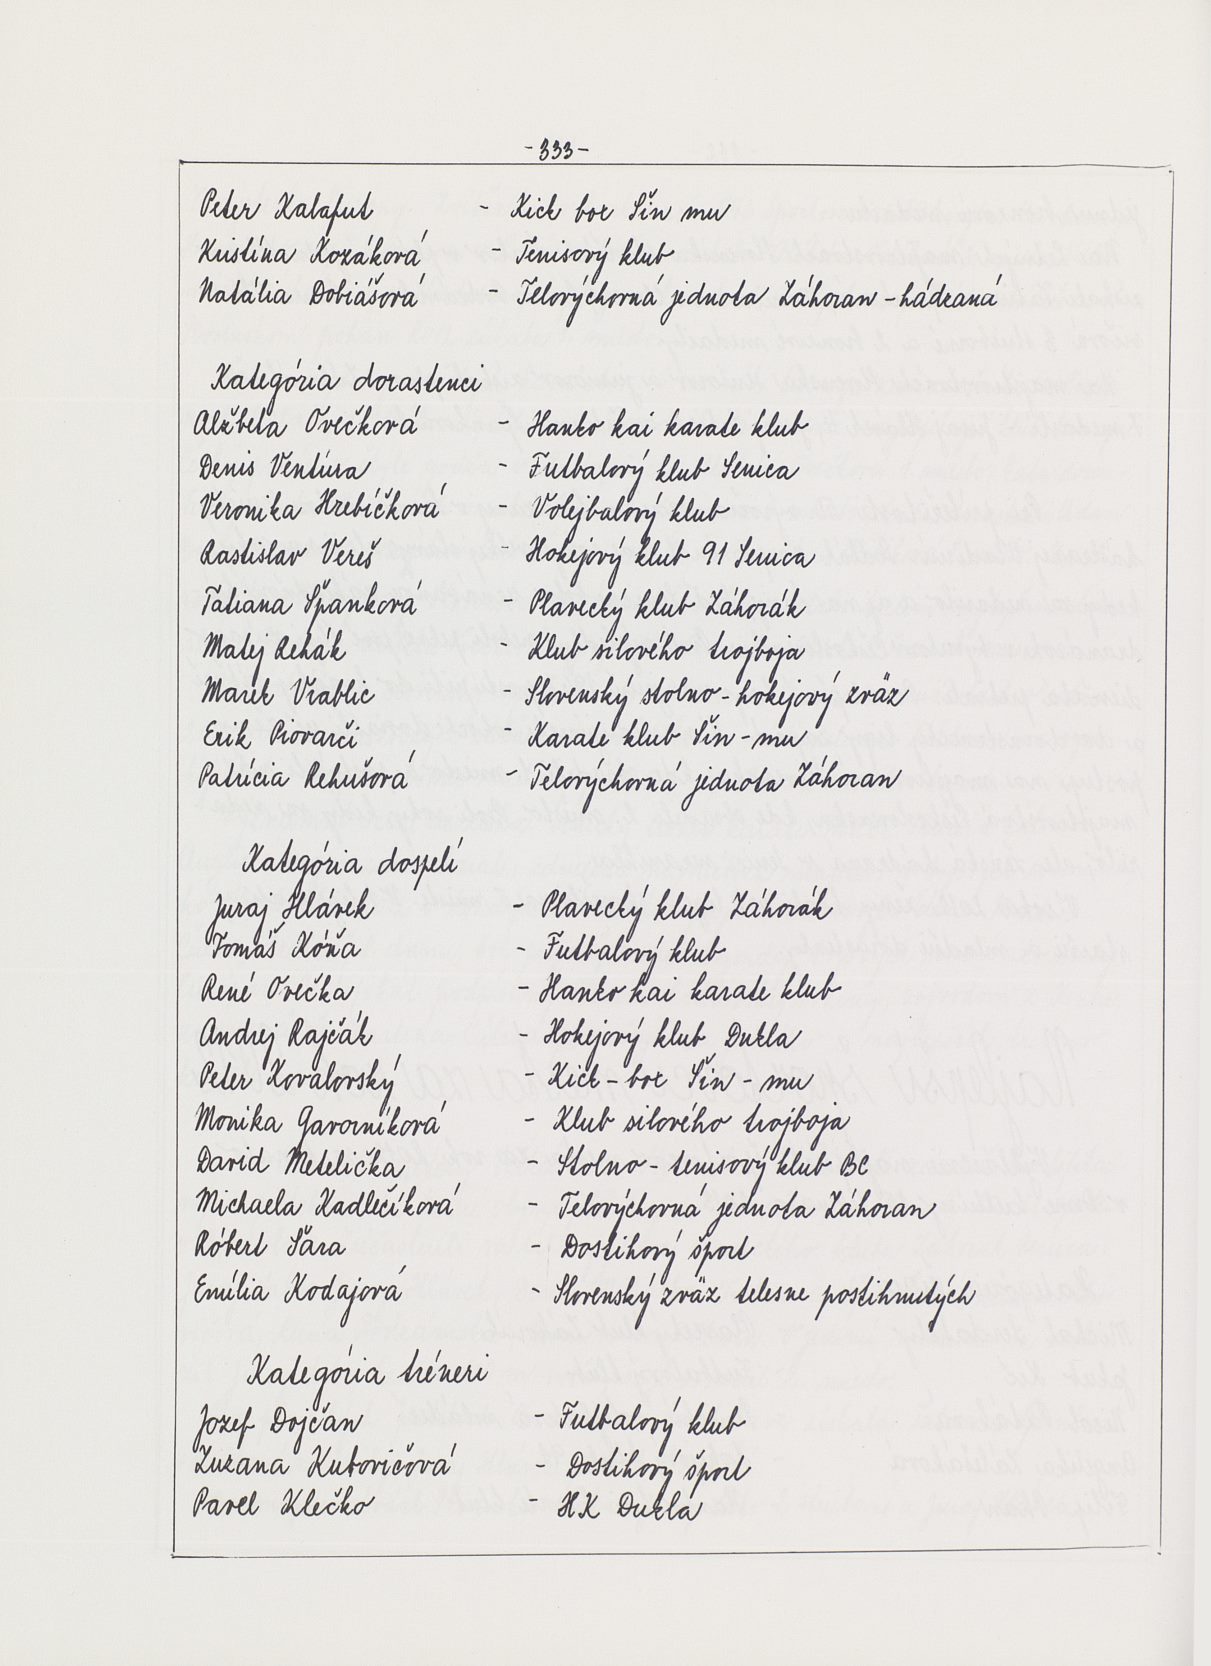 -333-
Peter Kalafut - Kick box Šin mu
Kristína Kozáková - Tenisový klub
Natália Dobiášová - Telovýchovná jednota Záhoran - hádzaná
Kategória dorastenci
Alžbeta Ovečková - Hanko kai karate klub
Denis Ventúra - Futbalový klub Senica
Veronika Hrebíčková - Volejbalový klub
Rastislav Vereš - Hokejový klub 91 Senica
Tatiana Španková - Plavecký klub Záhorák
Matej Rehák - Klub silového trojboja
Marek Vrablic - Slovenský stolno-hokejový zväz
Erik Piovarči - Karate klub Šin-mu
Patrícia Rehušová - Telovýchovná jednota Záhoran
Kategória dospelí
Juraj Hlávek - Plavecký klub Záhorák
Tomáš Kóňa - Futbalový klub
René Ovečka - Hanko kai karate klub
Andrej Rajčák - Hokejový klub Dukla
Peter Kovalovský - Kick-box Šin-mu
Monika Gavorníková - Klub silového trojboja
David Metelička - Stolno-tenisový klub BC
Michaela Kadlečíková - Telovýchovná jednota Záhoran
Róbert Šára - Dostihový šport
Emília Kodajová - Slovenský zväz telesne postihnutých
Kategória tréneri
Jozef Dojčan - Futbalový klub
Zuzana Kubovičová - Dostihový šport
Pavel Klečko - HK Dukla